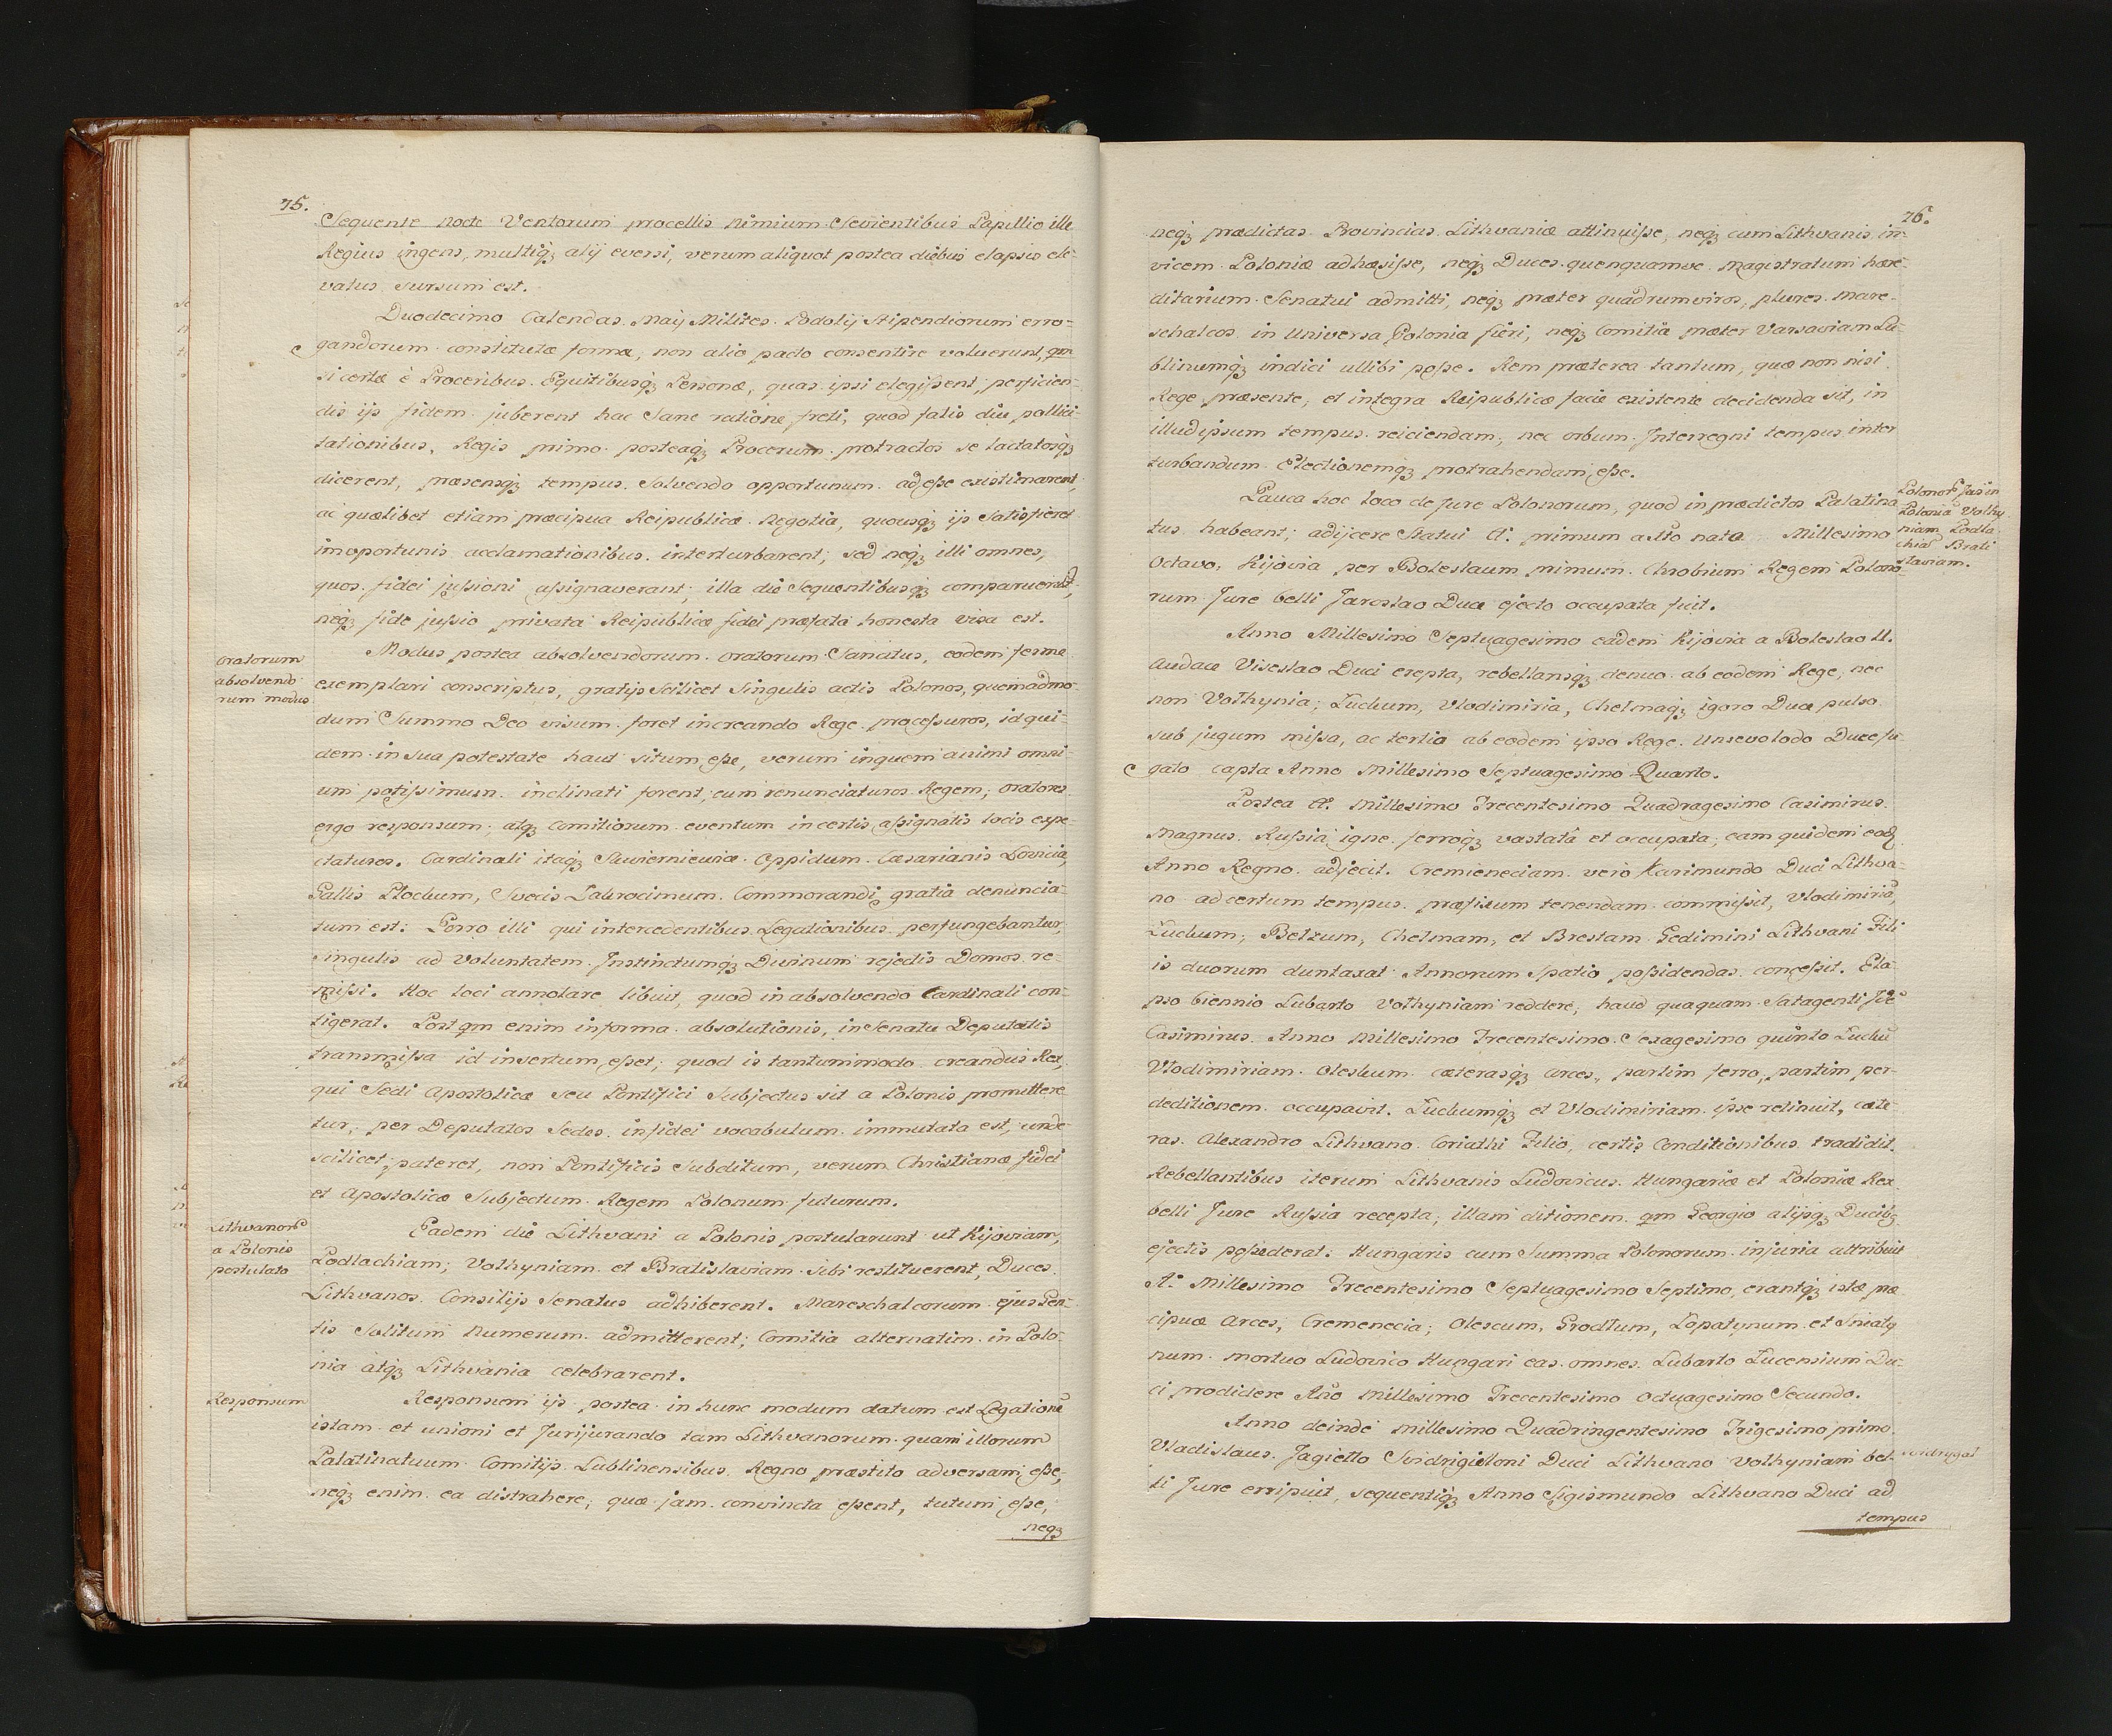 75.
Sequente nocte Ventorum procellis nimium Sevientibus Papillio ille
Regius ingens, multiq₃ alij eversi, verum aliquot postea diebus elapsis ele-
vatus sursum est.
Duodecimo Calendas Maij Milites Podolij stipendiorum erro-
gandorum constitutæ formæ, non alio pacto consentire voluerunt, qm
si certæ è Proceribus Equitibusq₃ Personæ, quas ipsi elegissent, perficien-
dis ijs fidem juberent hac Sane ratione freti, quod satis diu pollici-
tationibus, Regis primo posteaq₃ Procerum protractos se lactatosq₃
dicerent, præsensq₃ tempus Solvendo opportunum adesse existimarent,
ac quælibet etiam præcipua Reipublicæ Negotia, quousq₃ ijs Satisfieret
importunis acclamationibus interturbarent; sed neq₃ illi omnes,
quos fidei jussioni assignaverant; illa die Sequentibusq₃ comparuerunt,
neq₃ fide jussio privata Reipublicæ fidei præfata honesta visa est.
Oratorum
absolvendo
rum modus
Modus postea absolvendorum Oratorum Sancitus, eodem ferme
exemplari conscriptus, gratijs scilicet singulis actis Polonos, quemadmo-
dum Summo Deo visum foret increando Rege processuros, id qui-
dem in sua potestate haud situm esse, verum inquem animi omni-
um potissimum inclinati forent, eum renunciaturos Regem; Oratores
ergo responsum, atq₃ Comitiorum eventum in certis assignatis locis expe-
ctaturos. Cardinali itaq₃ Skwierniewiæ Oppidum Cæsarianis Lovicia,
Gallis Plockum, Svecis Zakrocimum Commorandi gratia denuncia-
tum est: Porro illi qui intercedentibus Legationibus perfungebantur,
singulis ad Voluntatem Instinctumq₃ Divinum rejectis Domos re-
missi. Hoc loci annotare libuit, quod in absolvendo Cardinali con-
tigerat. Post qm enim informa absolutionis, in Senatu Deputatis
transmissa id insertum esset; quod is tantummodo creandus Rex,
qui Sedi Apostolicæ seu Pontifici Subjectus sit a Polonis promittere
tur, per Deputatos Sedes in fidei vocabulum immutata est, unde
scilicet pateret, non Pontificis Subditum, verum Christianæ fidei
et Apostolicæ Subjectum Regem Polonum futurum.
Lithvanorũ
a Polonis
postulata
Eadem die Lithvani a Polonis postularunt ut Kijoviam,
Podlachiam; Volhyniam et Bratislaviam Sibi restituerent, Duces
Lithvanos Consilijs Senatus adhiberent. Mareschalcorum ejus Gen-
tis Solitum Numerum admitterent; Comitia alternatim in Polo-
nia atq₃ Lithvania celebrarent.
Responsum
Responsum ijs postea in hunc modum datum est Legationẽ
istam et unioni et Jurijurando tam Lithvanorum quam illorum
Palatinatuum Comitijs Lublinensibus Regno præstito adversam esse,
neq₃ enim ea distrahere, quæ jam convincta essent, tutum esse,
neq₃
76.
neq₃ prædictas Provincias Lithvaniæ attinuisse, neq₃ cum Lithvanis in-
vicem Poloniæ adhæsisse, neq₃ Duces quenquamve Magistratum hære-
ditarium Senatui admitti, neq₃ præter quadrumviros, plures Mare-
schalcos in Universa Polonia fieri, neq₃ Comitia præter Varsaviam Lu-
blinumq₃ indici ullibi posse. Rem præterea tantum, quæ non nisi
Rege præsente, et integra Reipublicæ facie existente decidenda sit, in
illud ipsum tempus reiciendam, nec orbum Interregni tempus inter
turbandum Electionemq₃ protrahendam esse.
Polonorũ Jus in
Poloniã Volhy
niam Podla
chiã Brati
slaviam.
Pauca hoc loco de Jure Polonorum, quod in prædictos Palatina
tus habeant; adijcere Statui A°. primum a Xto nato Millesimo
Octavo, Kijovia per Boleslaum primum Chrobium Regem Polono-
rum Jure belli Jaroslao Duce ejecto occupata fuit.
Anno Millesimo Septuagesimo eadem Kijovia a Boleslao II.
Audace Viseslao Duci erepta, rebellansq₃ denuo ab eodem Rege, nec
non Volhynia; Luckum, Vlodimiria, Chelmaq₃ igoro Duce pulso
sub jugum missa, ac tertia ab eodem ipso Rege Unsevolodo Duce fu-
gato capta Anno Millesimo Septuagesimo Quarto.
Postea A°. Millesimo Trecentesimo Quadragesimo Casimirus
Magnus Russia igne ferroq₃ vastata et occupata, eam quidem eod
Anno Regno adjecit. Cremieneciam vero Karimundo Duci Lithva-
no ad certum tempus præfixum tenendam commissit, Vlodimiriã,
Luckum, Belzum, Chelmam, et Brestam Gedimini Lithvani Fili
is duorum duntaxat Annorum Spatio possidendas concessit. Ela-
pso biennio Lubarto Volhyniam reddere, haud quaquam Satagenti Idẽ
Casimirus Anno Millesimo Trecentesimo Sexagesimo quinto Luckũ
Vlodimiriam Oleskum cæterasq₃ arces, partim ferro, partim per
deditionem occupavit. Luckumq₃ et Vlodimiriam ipse retinuit, cæte-
ras Alexandro Lithvano Coriathi Filio, certis Conditionibus tradidit.
Rebellantibus iterum Lithvanis Ludovicus Hungariæ et Poloniæ Rex
belli Jure Russia recepta, illam ditionem qm Georgio alijsq₃ Ducib₃
ejectis possederat: Hungaris cum Summa Polonorum injuria attribuit
A°. Millesimo Trecentesimo Septuagesimo Septimo, erantq₃ istæ præ
cipuæ Arces, Cremenecia; Olescum, Grodlum, Lopatynum et Sniaty
num mortuo Ludovico Hungari eas omnes Lubarto Lucensium Du-
ci prodidere Año Millesimo Trecentesimo Octuagesimo Secundo.
Anno deinde Millesimo Quadringentesimo Trigesimo primo
Vladislaus Jagiello Svidrigielloni Duci Lithvano Volhyniam bel-
li Jure erripuit, sequentiq₃ Anno Sigismundo Lithvano Duci ad
tempus